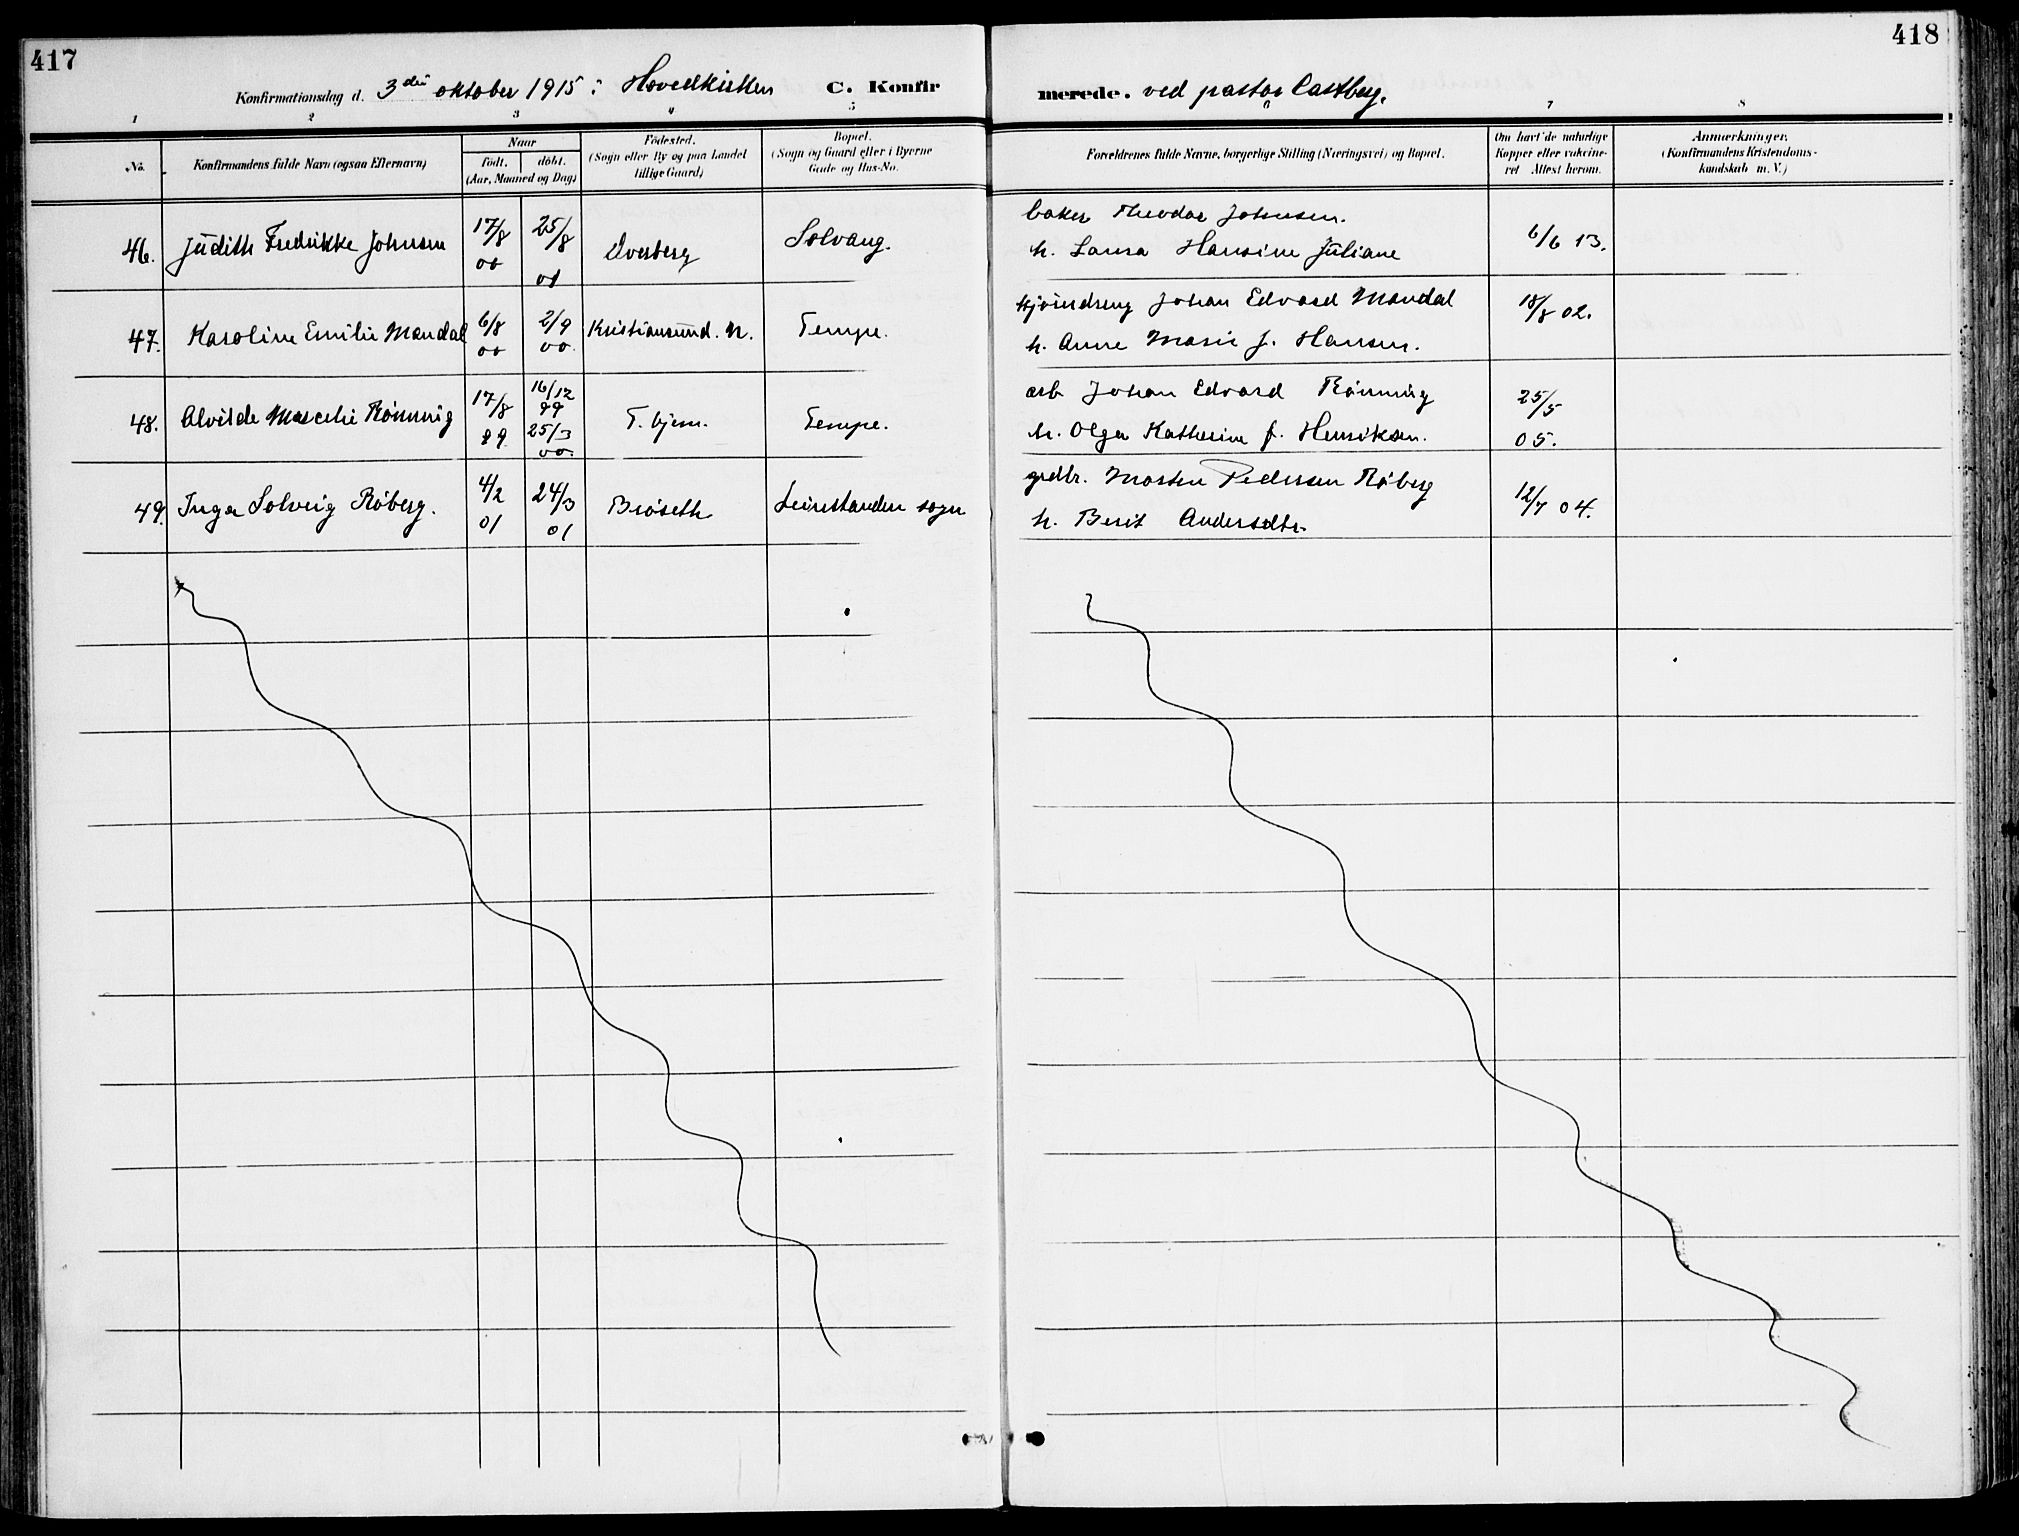 417
418
Konfirmationsdag d. 3die oktober 1915 i Hovedkirken C. Konfir
merede. ved pastor Castberg.
1 2 3 4 5 6 7 8
No.
Konfirmandens fulde Navn (ogsaa Efternavn)
Naar
født. døbt.
(Aar, Maaned og Dag)
Fødested.
(Sogn eller By og paa Landet
tillige Gaard)
Bopæl.
(Sogn og Gaard eller i Byerne
Gade og Hus-No.
Forældrenes fulde Navne, borgerlige Stilling (Næringsvei) og Bopæl.
Om havt de naturlige
Kopper eller vakcine-
ret Attest herom.
Anmærkninger.
(Konfirmandens Kristendoms-
kundskab m. V.)
46. Judith Fredrikke Johnsen 17/8 00 25/8 01 Overberg Solvang.
baker Theodor Johnsen.
h. Laura Hansine Juliane
6/6 13.
47. Karoline Emilie Mandal 6/8 00 2/9 00. Kristiansund. N. Tempe.
Johan Edvard Mandal
h. Anne Marie f. Hansen.
18/8 02.
48. Alvilde Marcelie Rønning 17/8 99 16/12 99 25/3 00. T. hjem. Tempe.
arb. Johan Edvard Rønning
h. Olga Katherine f. Henriksen.
25/5
05.
49. Inga Solveig Røberg. 4/2 01 24/3 01 Brøseth Leinstranden sogn
grdbr. Morten Pedersen Røberg
h. Berit Andersdtr.
12/7 04.